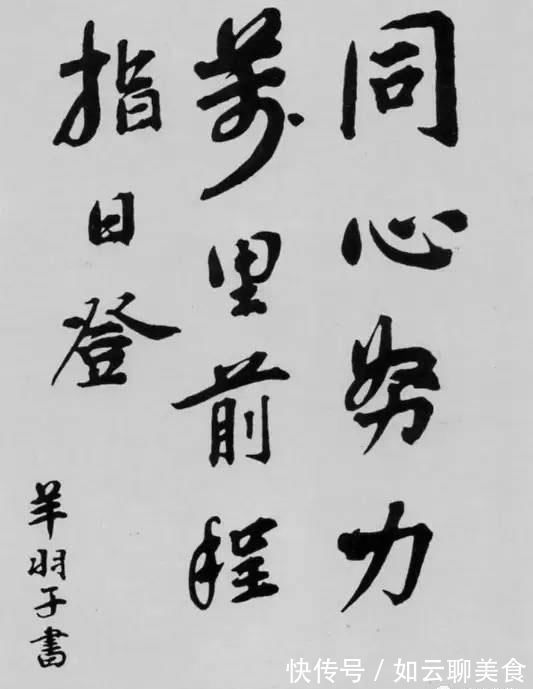 同心努力
萬里前程
指日登
羊羽子書
快传号/如云聊美食